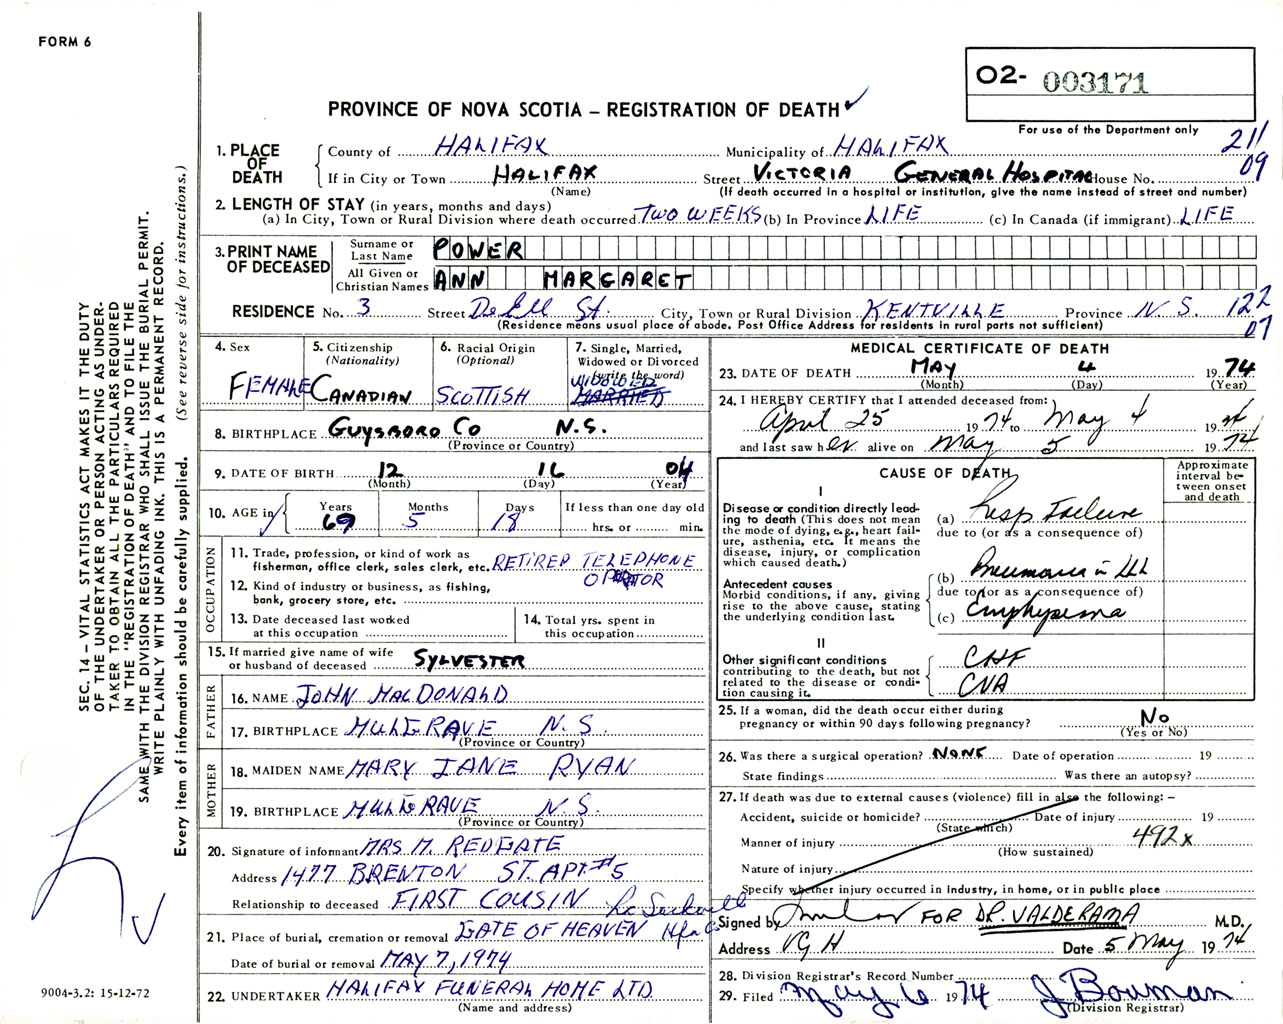 FORM 6
O2- 003171
For use of the Department only
PROVINCE OF NOVA SCOTIA – REGISTRATION OF DEATH
211
09
1. PLACE OF DEATH
County of HALIFAX Municipality of HALIFAX
If in City or Town HALIFAX Street VICTORIA GENERAL HOSPITAL House No.
(Name) (If death occurred in a hospital or institution, give the name instead of street and number)
2. LENGTH OF STAY (in years, months and days)
(a) In City, Town or Rural Division where death occurred TWO WEEKS (b) In Province LIFE (c) In Canada (if immigrant) LIFE
3. PRINT NAME OF DECEASED
Surname or Last Name POWER
All Given or Christian Names ANN MARGARET
RESIDENCE No. 3 Street St. City, Town or Rural Division KENTVILLE Province N.S. 122
(Residence means usual place of abode. Post Office Address for residents in rural parts not sufficient) 07
4. Sex
FEMALE
5. Citizenship
(Nationality)
CANADIAN
6. Racial Origin
(Optional)
SCOTTISH
7. Single, Married,
Widowed or Divorced
(write the word)
WIDOWED
MARRIED
8. BIRTHPLACE GUYSBORO CO N.S.
(Province or Country)
9. DATE OF BIRTH 12 16 04
(Month) (Day) (Year)
10. AGE in
Years Months Days If less than one day old
69 5 18 hrs. or min.
OCCUPATION
11. Trade, profession, or kind of work as
fisherman, office clerk, sales clerk, etc. RETIRED TELEPHONE
OPERATOR
12. Kind of industry or business, as fishing,
bank, grocery store, etc.
13. Date deceased last worked
at this occupation
14. Total yrs. spent in
this occupation
15. If married give name of wife
or husband of deceased SYLVESTER
FATHER
16. NAME JOHN MACDONALD
17. BIRTHPLACE MULGRAVE N.S.
(Province or Country)
MOTHER
18. MAIDEN NAME MARY JANE RYAN
19. BIRTHPLACE MULGRAVE N.S.
(Province or Country)
20. Signature of informant MRS M. REDGATE
Address 1477 BRENTON ST. APT #5
Relationship to deceased FIRST COUSIN
21. Place of burial, cremation or removal GATE OF HEAVEN Hfx Co
Date of burial or removal MAY 7, 1974
22. UNDERTAKER HALIFAX FUNERAL HOME LTD.
(Name and address)
MEDICAL CERTIFICATE OF DEATH
23. DATE OF DEATH MAY 4 1974
(Month) (Day) (Year)
24. I HEREBY CERTIFY that I attended deceased from:
April 25 1974 to May 4 1974
and last saw her alive on May 5 1974
CAUSE OF DEATH
Approximate
interval be-
tween onset
and death
I
Disease or condition directly lead-
ing to death (This does not mean
the mode of dying, e.g., heart fail-
ure, asthenia, etc. It means the
disease, injury, or complication
which caused death.)
(a) Resp Failure
due to (or as a consequence of)
Antecedent causes
Morbid conditions, if any, giving
rise to the above cause, stating
the underlying condition last.
(b) Pneumonia in LLL
due to (or as a consequence of)
(c) Emphysema
II
Other significant conditions
contributing to the death, but not
related to the disease or condi-
tion causing it.
CHF
CVA
25. If a woman, did the death occur either during
pregnancy or within 90 days following pregnancy? No
(Yes or No)
26. Was there a surgical operation? NONE Date of operation 19
State findings Was there an autopsy?
27. If death was due to external causes (violence) fill in also the following: –
Accident, suicide or homicide? Date of injury 19
(State which)
Manner of injury 492x
(How sustained)
Nature of injury
Specify whether injury occurred in industry, in home, or in public place
Signed by FOR DR. VALDERAMA M.D.
Address VGH Date 5 May 1974
28. Division Registrar's Record Number
29. Filed May 6 1974 J Bowman
(Division Registrar)
SEC. 14 – VITAL STATISTICS ACT MAKES IT THE DUTY
OF THE UNDERTAKER OR PERSON ACTING AS UNDER-
TAKER TO OBTAIN ALL THE PARTICULARS REQUIRED
IN THE "REGISTRATION OF DEATH" AND TO FILE THE
SAME WITH THE DIVISION REGISTRAR WHO SHALL ISSUE THE BURIAL PERMIT.
WRITE PLAINLY WITH UNFADING INK. THIS IS A PERMANENT RECORD.
Every item of information should be carefully supplied. (See reverse side for instructions.)
9004-3.2: 15-12-72